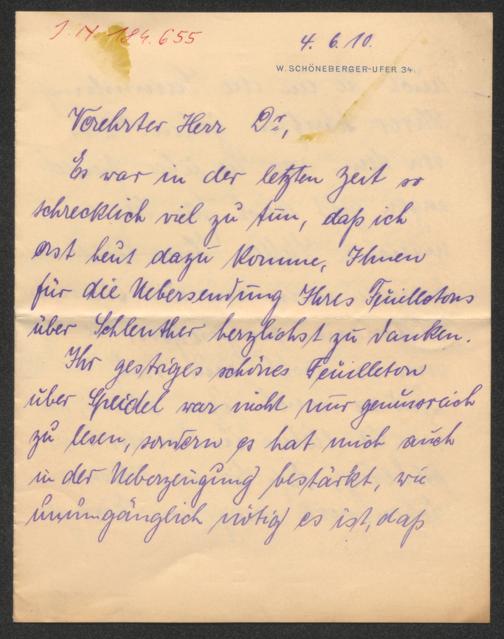 J.N. 184.655
4.6.10.
W. SCHÖNEBERGER-UFER 34.
Verehrter Herr Dr.,
Es war in der letzten Zeit so
schrecklich viel zu tun, daß ich
erst heut dazu komme, Ihnen
für die Uebersendung Ihres Feuilletons
über Schlenther herzlichst zu danken.
Ihr gestriges schönes Feuilleton
über Speidel war nicht nur genussreich
zu lesen, sondern es hat mich auch
in der Ueberzeugung bestärkt, wie
unumgänglich nötig es ist, daß